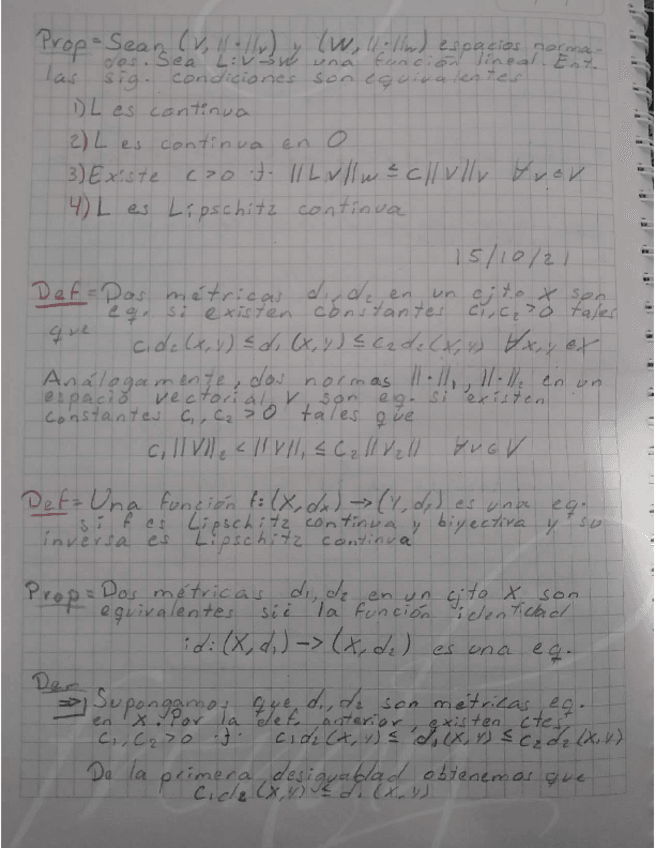 Prop = Sean (V, ||·||v) y (W, ||·||w) espacios norma-
dos. Sea L: V→W una función lineal. Ent.
las sig. condiciones son equivalentes
1) L es continua
2) L es continua en 0
3) Existe c>0 ·)· ||Lv||w ≤ c||v||v ∀v∈V
4) L es Lipschitz continua
15/10/21
Def = Dos métricas d₁, d₂ en un cjto X son
eq. si existen constantes c₁, c₂ > 0 tales
que
c₁d₂(x,y) ≤ d₁(x,y) ≤ c₂d₂(x,y) ∀x,y ∈X
Análogamente, dos normas ||·||₁, ||·||₂ en un
espacio vectorial V son eq. si existen
constantes c₁, c₂ > 0 tales que
c₁||V||₂ < ||V||₁ ≤ C₂||V₂|| ∀v∈V
Def = Una función f: (X, dx) → (Y, dy) es una eq.
si f es Lipschitz continua y biyectiva y su
inversa es Lipschitz continua
Prop = Dos métricas d₁, d₂ en un cjto X son
equivalentes sii la función identidad
id: (X, d₁) → (X, d₂) es una eq.
Dem
⇒] Supongamos que d₁, d₂ son métricas eq.
en X. Por la def. anterior, existen ctes
c₁, c₂ > 0 ·)· c₁d₂(x,y) ≤ d₁(x,y) ≤ c₂d₂(x,y)
De la primera desigualdad obtenemos que
c₁d₂(x,y) ≤ d₁(x,y)